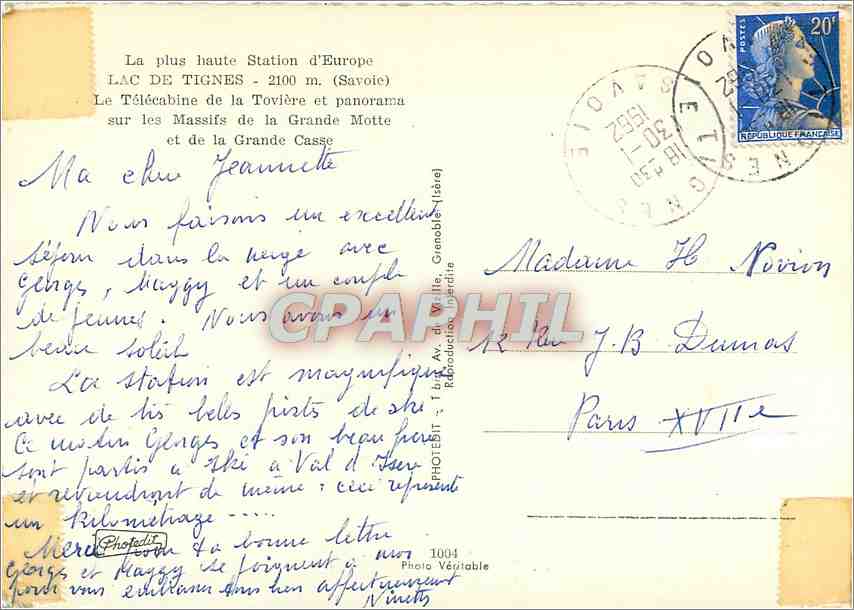 La plus haute Station d'Europe
LAC DE TIGNES - 2100 m. (Savoie)
Le Télécabine de la Tovière et panorama
sur les Massifs de la Grande Motte
et de la Grande Casse
Ma chere Jeannette
Nous faisons un excellent
séjour dans la neige avec
Georges, Maggy et un couple
de jeunes. Nous avons un
beau soleil
La station est magnifique
avec de très belles pistes de ski.
Ce matin Georges et son beau frere
sont partis a ski a Val d Isere
et reviendront de même : ceci represente
un kilométrage .....
Merci pour ta bonne lettre
Georges et Maggy se joignent a moi
pour vous embrasser tous bien affectueusement
Ninette
Photedit
1004
Photo Véritable
PHOTEDIT - 1 bis, Av. de Vizille, Grenoble (Isère)
Reproduction Interdite
CPAPHIL
TIGNES
SAVOIE
18 H 30
30 - 1
1962
POSTES
20f
REPUBLIQUE FRANÇAISE
Madame H Novion
12 Rue J.B Dumas
Paris XVIIe